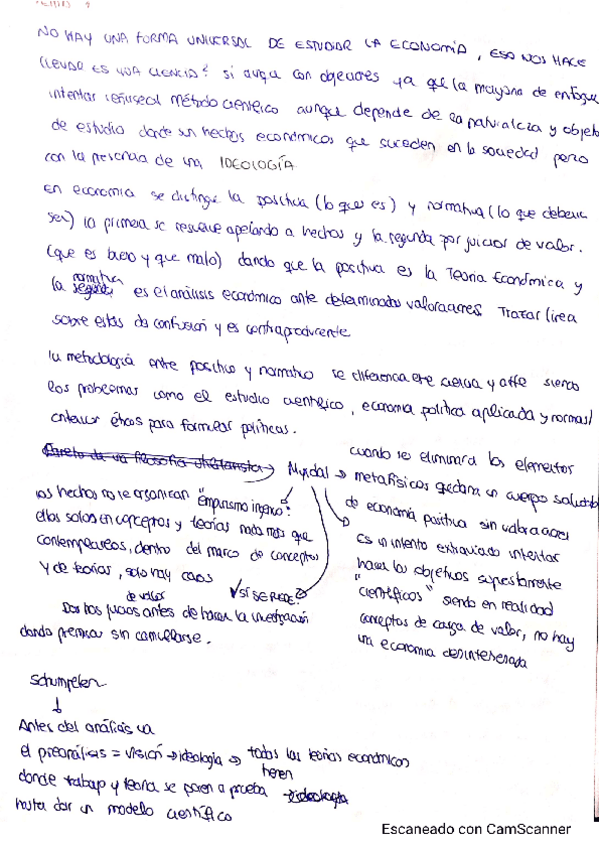 NO HAY UNA FORMA UNIVERSAL DE ESTUDIAR LA ECONOMÍA, ESO NOS HACE
LLEVAR ES UNA CIENCIA? Si aunque con objeciones ya que la mayoria de enfoques
intentar el método cientifico aunque depende de la naturaleza y objeto
de estudio donde son hechos económicos que suceden en la sociedad pero
con la presencia de una IDEOLOGÍA
En economia se distingue la positiva (lo que es) y normativa (lo que deberia
ser) la primera se resuelve apelando a hechos y la segunda por juicios de valor.
(que es bueno y que malo) dando que la positiva es la Teoria Económica y
la normativa es el análisis económico ante determinadas valoraciones. Trazar linea
sobre estas da confusión y es contraproducente
la metodologiá entre positivo y normativo se diferencia entre ciencia y arte siendo
los problemas como el estudio cientifico, economia politica aplicada y normas/
criterios éticos para formular politicas.
Myrdal → cuando se eliminara los elementos
metafisicos quedara un cuerpo saludable
de economiá positiva sin valoraciones
es un intento intentar
hacer los objetivos supuestamente
"cientificos" siendo en realidad
conceptos de carga de valor, no hay
una economia desinteresada
los hechos no se organizan "empirismo ingenuo"
ellos solos en conceptos y teorías nada más que
contemplarlos, dentro del marco de conceptos
y de teorias, solo hay caos
✓ SI SE PUEDE?
Dar los juicios de valor antes de hacer la investigación
dando premisas sin camuflarse.
Schumpeter
↓
Antes del análisis va
el preanálisis = visión → ideologia → todas las teorias económicas
tienen
donde trabajo y teoria se ponen a prueba ideologia
hasta dar un modelo cientifico
Escaneado con CamScanner